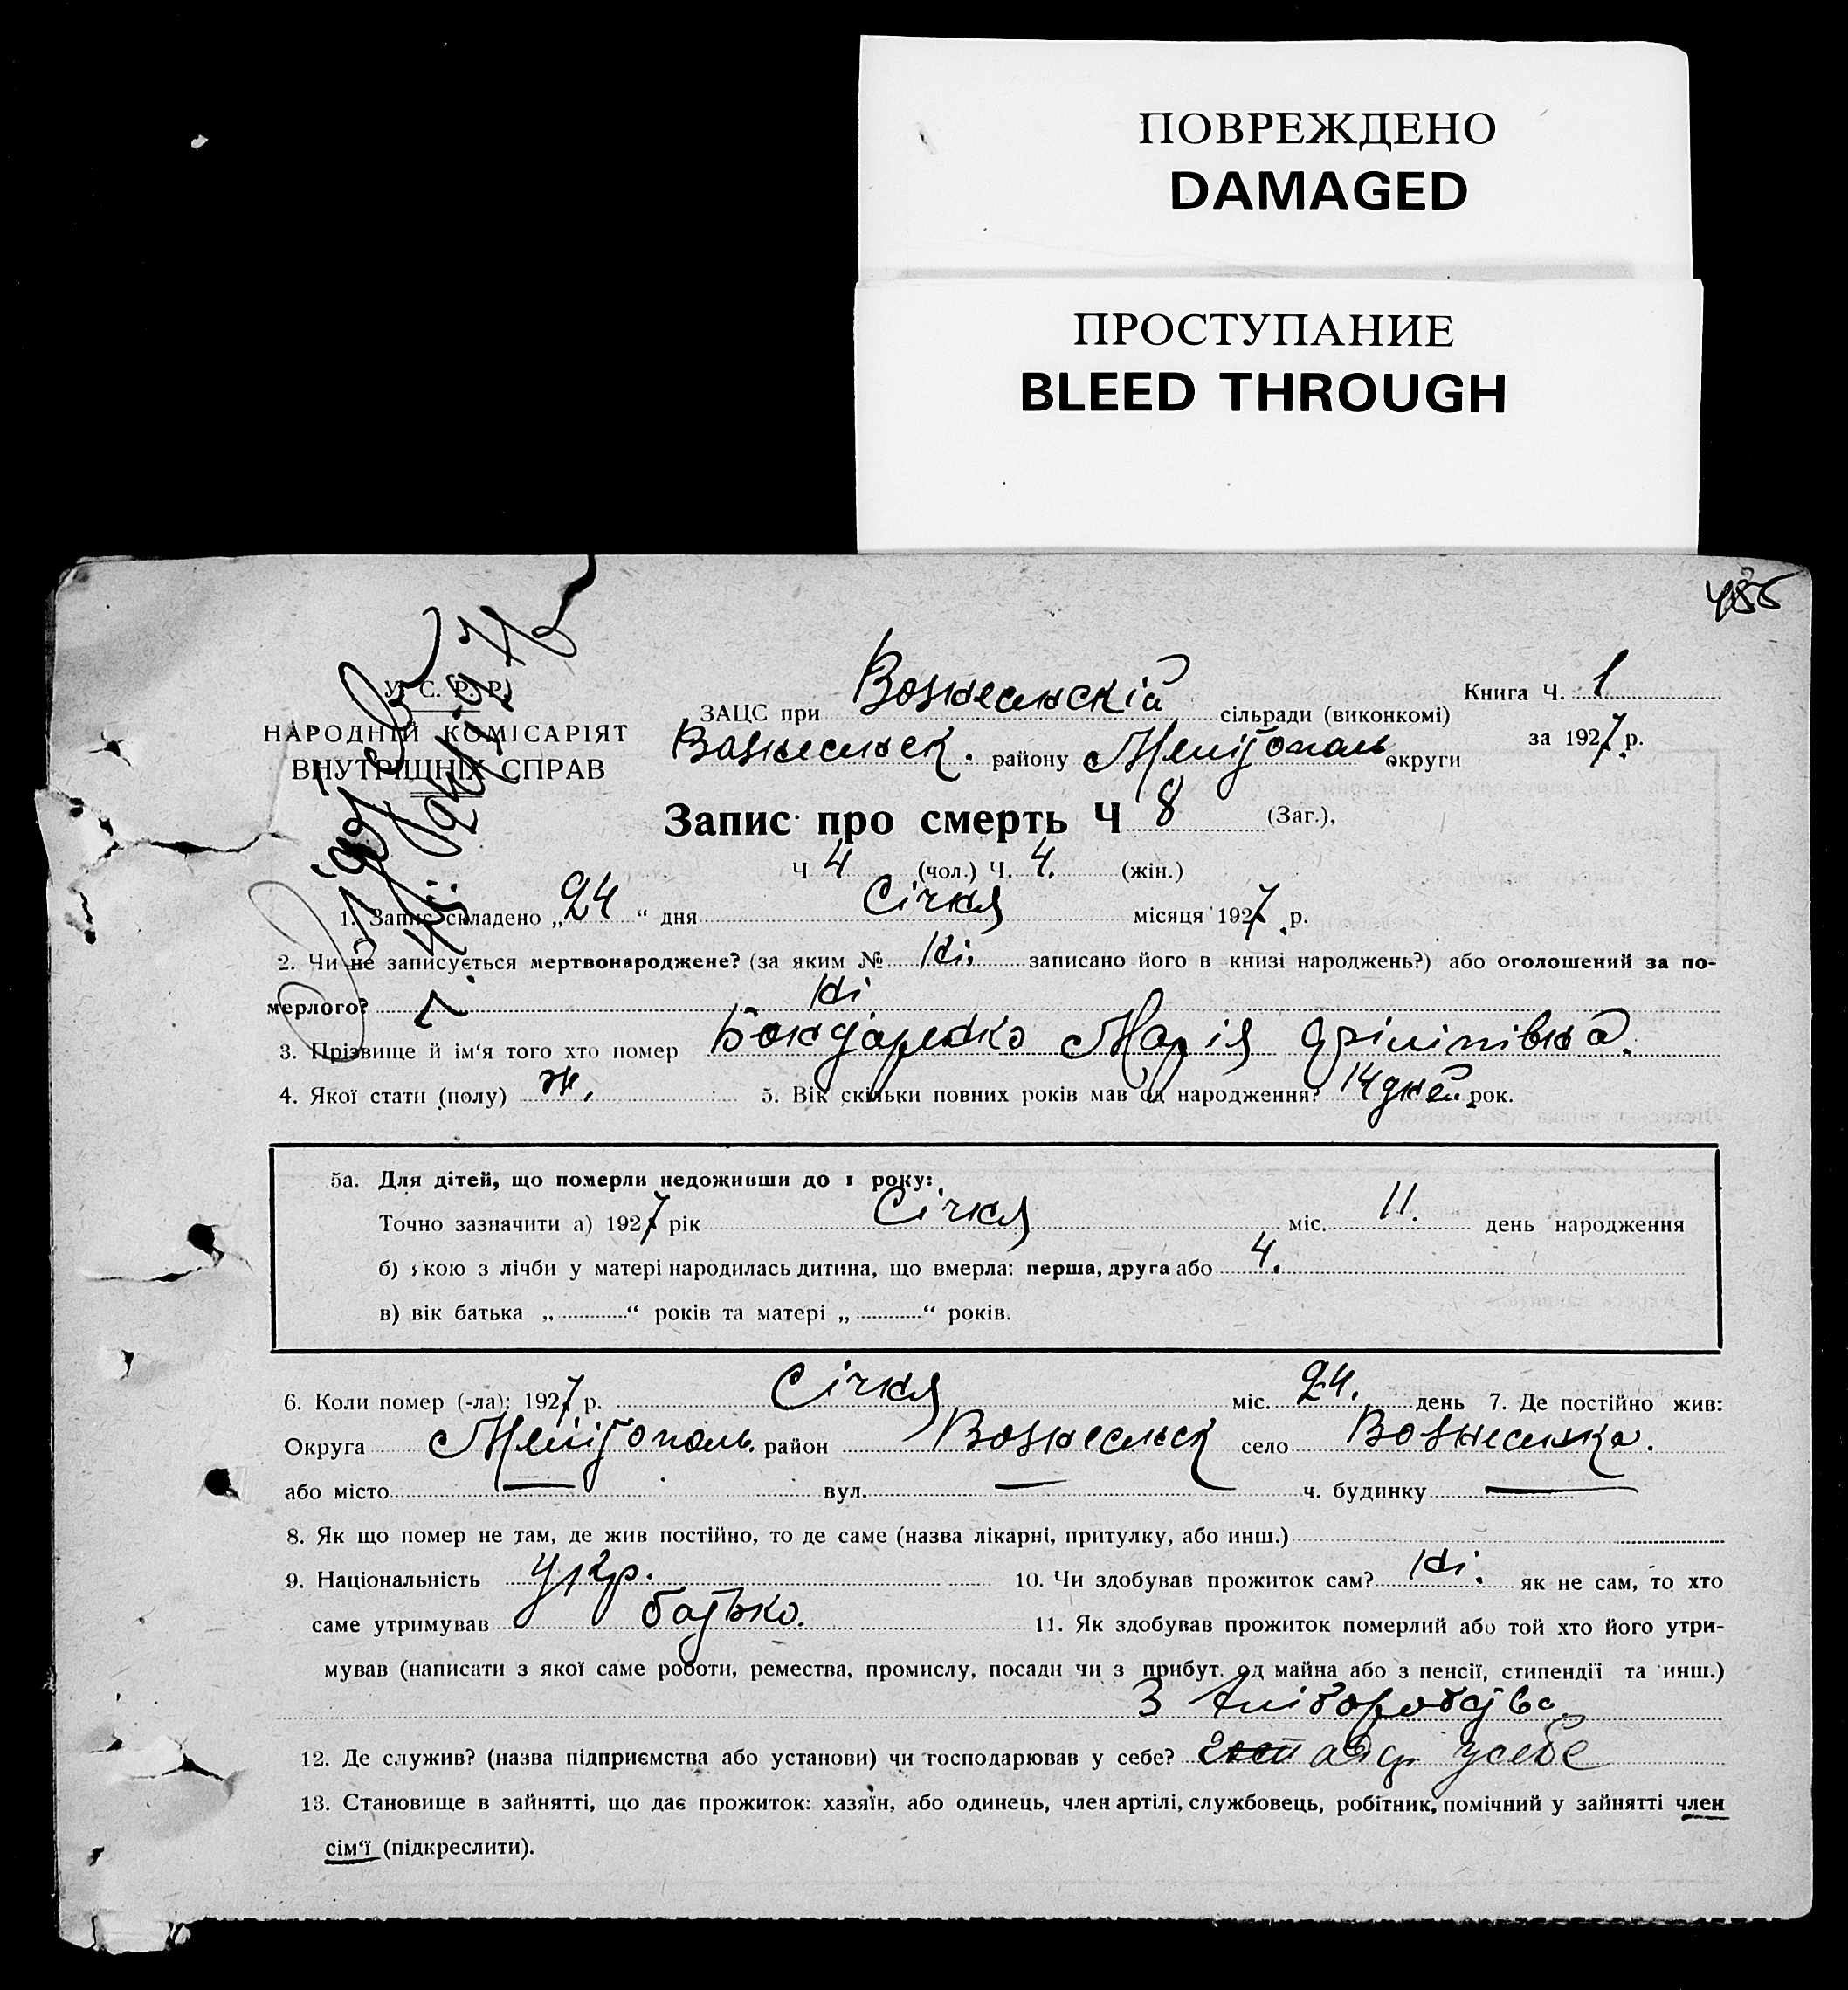 ПОВРЕЖДЕНО
DAMAGED
ПРОСТУПАНИЕ
BLEED THROUGH
У. С. Р. Р.
НАРОДНІЙ КОМІСАРІЯТ
ВНУТРІШНІХ СПРАВ
Книга Ч. 1
за 1927 р.
ЗАЦС при Вознесенскій сільради (виконкомі)
Вознесенск. району Меліτополь округи
Запис про смерть Ч 8 (Заг.),
Ч 4 (чол.) Ч. 4. (жін.)
1. Запис складено „24“ дня Січня місяця 1927 р.
2. Чи не записується мертвонароджене? (за яким № Ні. записано його в книзі народжень?) або оголошений за по-
мерлого? Ні
3. Прізвище й ім‘я того хто помер Бондаренко Марія Філипівна.
4. Якої стати (полу) ж. 5. Вік скільки повних років мав од народження? 14 дней рок.
5а. Для дітей, що померли недоживши до 1 року:
Точно зазначити а) 1927 рік Січня міс. 11. день народження
б) якою з лічби у матері народилась дитина, що вмерла: перша, друга або 4.
в) вік батька „ “ років та матері „ “ років.
6. Коли помер (-ла): 1927 р. Січня міс. 24. день 7. Де постійно жив:
Округа Мелітополь. район Вознесенск село Вознесенка.
або місто — вул. — ч. будинку —
8. Як що помер не там, де жив постійно, то де саме (назва лікарні, притулку, або инш.)
9. Національність Укр. 10. Чи здобував прожиток сам? Ні. як не сам, то хто
саме утримував батько. 11. Як здобував прожиток померлий або той хто його утри-
мував (написати з якої саме роботи, ремества, промислу, посади чи з прибут. од майна або з пенсії, стипендії та инш.)
З хліборобства
12. Де служив? (назва підприємства або установи) чи господарював у себе? у себе
13. Становище в зайнятті, що дає прожиток: хазяїн, або одинець, член артілі, службовець, робітник, помічний у зайнятті член
сім‘ї (підкреслити).